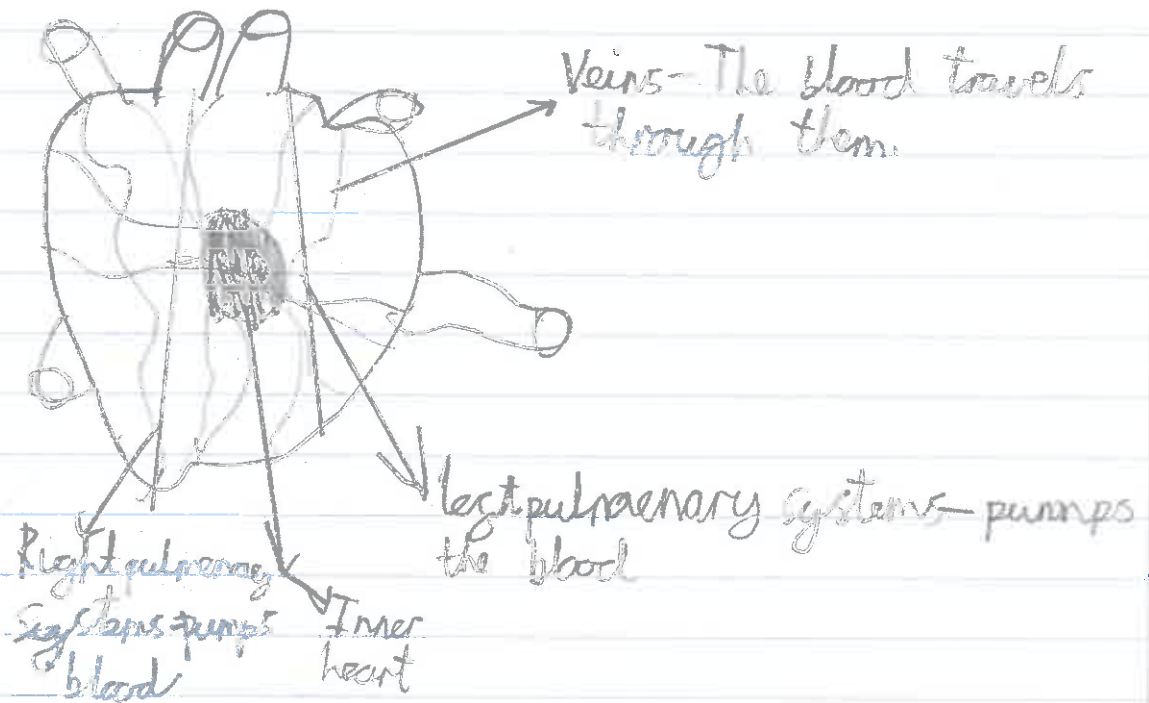 Veins - The blood travels
through them.
left pulmaenary systems - pumps
the blood
Right pulmenary
systems - pumps
blood
Inner
heart